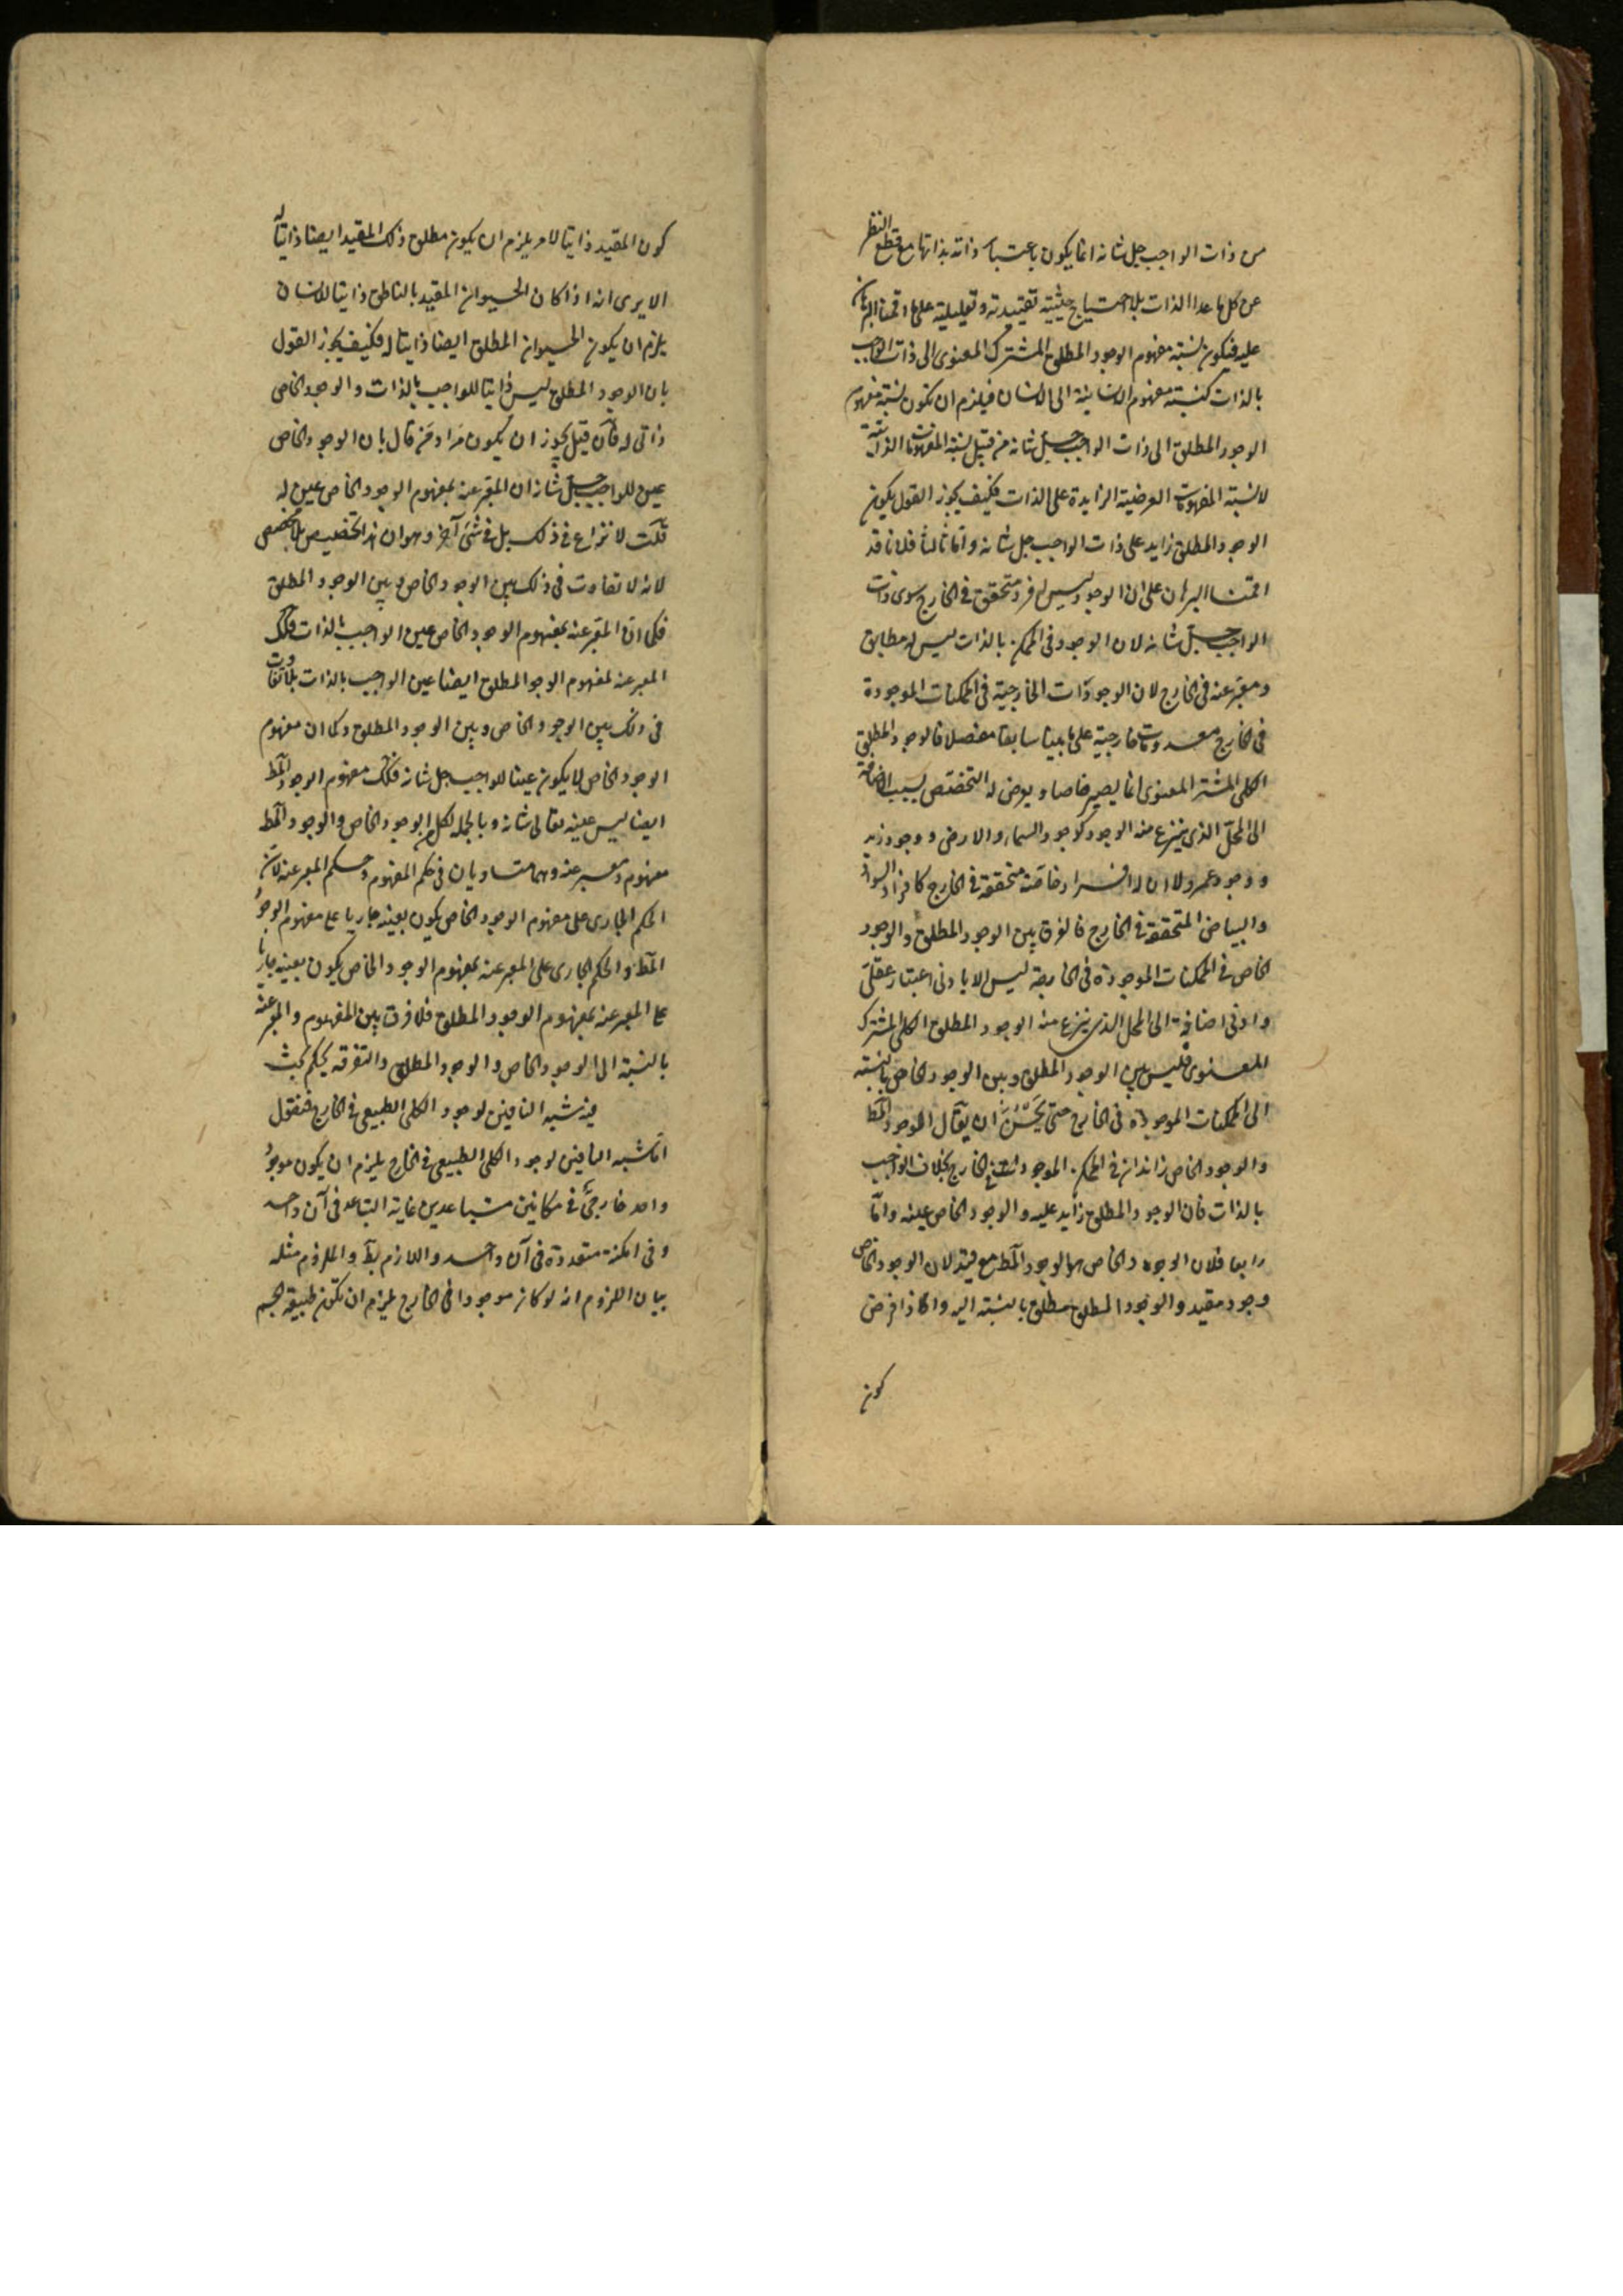 من ذات الواجب جل شانه انما يكون باعتبار ذاته بذاتها مع قطع النظر
عن كل ما عدا الذات بلا احتياج حيثية تقييدية وتعليلية على ما اقمنا البرهان
عليه فيكون نسبة مفهوم الوجود المطلق المشترك المعنوى الى ذات الواجب
بالذات كنسبة مفهوم الانسانية الى الانسان فيلزم ان تكون نسبة مفهوم
الوجود المطلق الى ذات الواجب جل شانه من قبيل نسبة المفهومات الذاتية
لا نسبة المفهومات العرضية الزايدة على الذات فكيف يجوز القول بكون
الوجود المطلق زايد على ذات الواجب جل شانه واما ثالثا فلانا قد
اقمنا البرهان على ان الوجود ليس له فرد متحقق فى الخارج سوى ذات
الواجب جل شانه لان الوجود فى الممكن بالذات ليس له مطابق
ومعبر عنه فى الخارج لان الوجودات الخارجية فى الممكنات الموجودة
فى الخارج معدومات خارجية على ما بينا سابقا مفصلا فالوجود المطلق
الكلى المشترك المعنوى انما يصير خاصا ويعرض له التخصص بسبب الاضافة
الى المحل الذى ينتزع منه الوجود كوجود السماء والارض ووجود زيد
ووجود عمرو لا ان له افراد خاصة متحققة فى الخارج كافراد السواد
والبياض المتحققة فى الخارج فالفرق بين الوجود المطلق والوجود
الخاص فى الممكنات الموجودة فى الخارجة ليس الا بادنى اعتبار عقلى
وادنى اضافة الى المحل الذى ينتزع منه الوجود المطلق الكلى المشترك
المعنوى فليس بين الوجود المطلق وبين الوجود الخاص بالنسبة
الى الممكنات الموجودة فى الخارج حتى يحسن ان يقال الوجود المط
والوجود الخاص زائدان فى الممكن الموجودات فى الخارج بخلاف الواجب
بالذات فان الوجود المطلق زايد عليه والوجود الخاص عينه واما
رابعا فلان الوجود الخاص هو الوجود المط مع قيد لان الوجود الخاص
وجود مقيد والوجود المطلق مطلق بالنسبة اليه واذا فرض
كون
كون المقيد ذاتيا لامر يلزم ان يكون مطلق ذلك المقيد ايضا ذاتيا له
الا يرى انه اذا كان الحيوان المقيد بالناطق ذاتيا للانسان
يلزم ان يكون الحيوان المطلق ايضا ذاتيا له فكيف يجوز القول
بان الوجود المطلق ليس ذاتيا للواجب بالذات والوجود الخاص
ذاتى له فان قيل يجوز ان يكون مراد من قال بان الوجود الخاص
عين للواجب جل شانه ان المعبر عنه بمفهوم الوجود الخاص عين له
قلت لا نزاع فى ذلك بل فى شئ آخر وهو ان هذا تخصيص بلا مخصص
لانه لا تفاوت فى ذلك بين الوجود الخاص وبين الوجود المطلق
فكما ان المعبر عنه بمفهوم الوجود الخاص عين الواجب بالذات فكك
المعبر عنه لمفهوم الوجود المطلق ايضا عين الواجب بالذات بلا تفاوت
فى ذلك بين الوجود الخاص وبين الوجود المطلق وكما ان مفهوم
الوجود الخاص لا يكون عينا للواجب جل شانه فكك مفهوم الوجود المط
ايضا ليس عينه تعالى شانه وبالجملة لكل الوجود الخاص والوجود المط
مفهوم ومعبر عنه وهما متساويان فى حكم المفهوم وحكم المعبر عنه لان
الحكم الجارى على مفهوم الوجود الخاص يكون بعينه جاريا على مفهوم الوجود
المط والحكم الجارى على المعبر عنه بمفهوم الوجود الخاص يكون بعينه جاريا
على المعبر عنه بمفهوم الوجود المطلق فلا فرق بين المفهوم والمعبر عنه
بالنسبة الى الوجود الخاص والوجود المطلق والتفرقة تحكم بحث
فى شبه النافين لوجود الكلى الطبيعى فى الخارج فنقول
اما شبه النافين لوجود الكلى الطبيعى فى الخارج يلزم ان يكون موجود
واحد خارجى فى مكانين متباعدين غاية التباعد فى آن واحد
وفى امكنة متعددة فى آن واحد واللازم بط والملزوم مثله
بيان اللزوم انه لو كان موجودا فى الخارج لزم ان تكون طبيعة الجسم